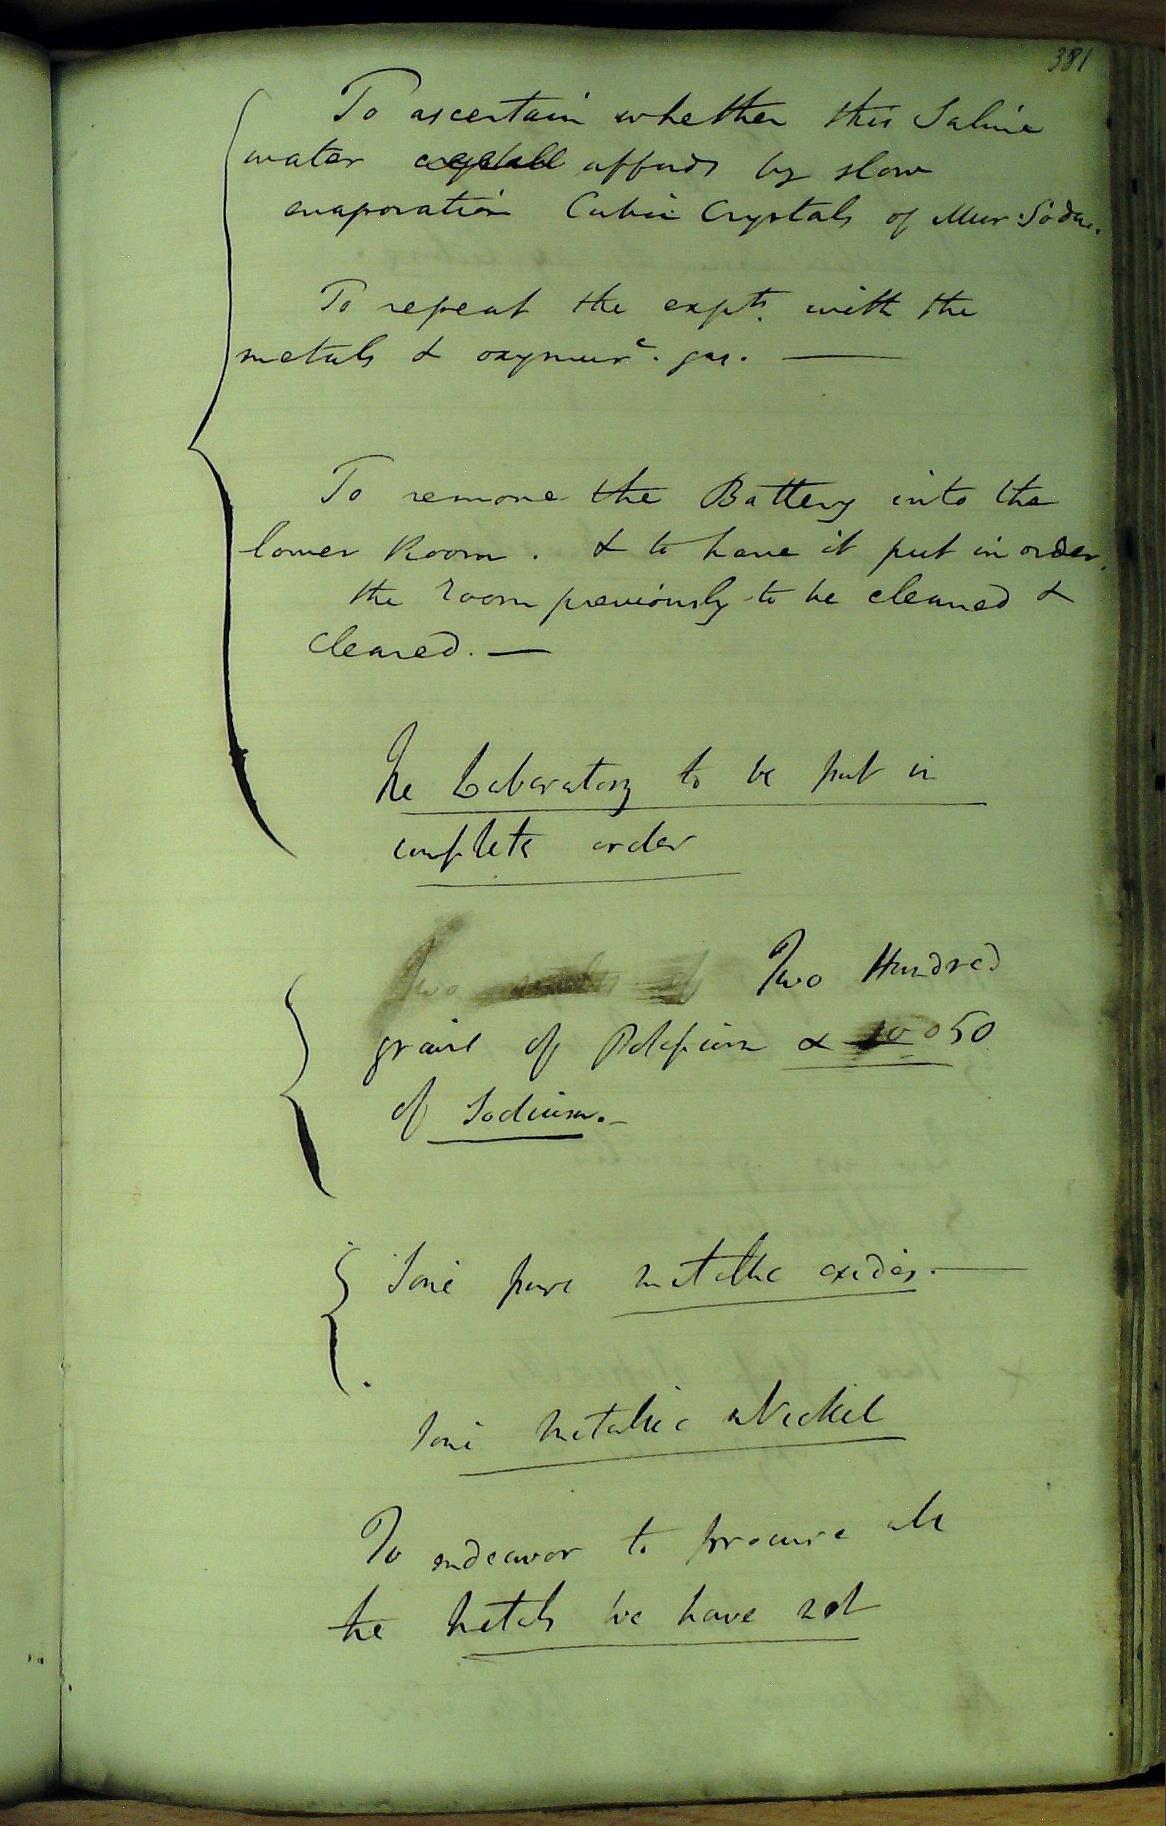 381
To ascertain whether this Saline
water affords by slow
evaporation Cubic Crystals of Mur: Soda.
To repeat the expts. with the
metals & oxymurc. gas. —
To remove the Battery into the
lower Room. & to have it put in order.
the room previously to be cleaned &
cleared. —
The Laboratory to be put in
complete order
Two Two Hundred
grains of Potassium & 50
of Sodium. —
Some pure metallic oxides. —
Some metallic Nickel
To endeavor to procure all
the metals we have not